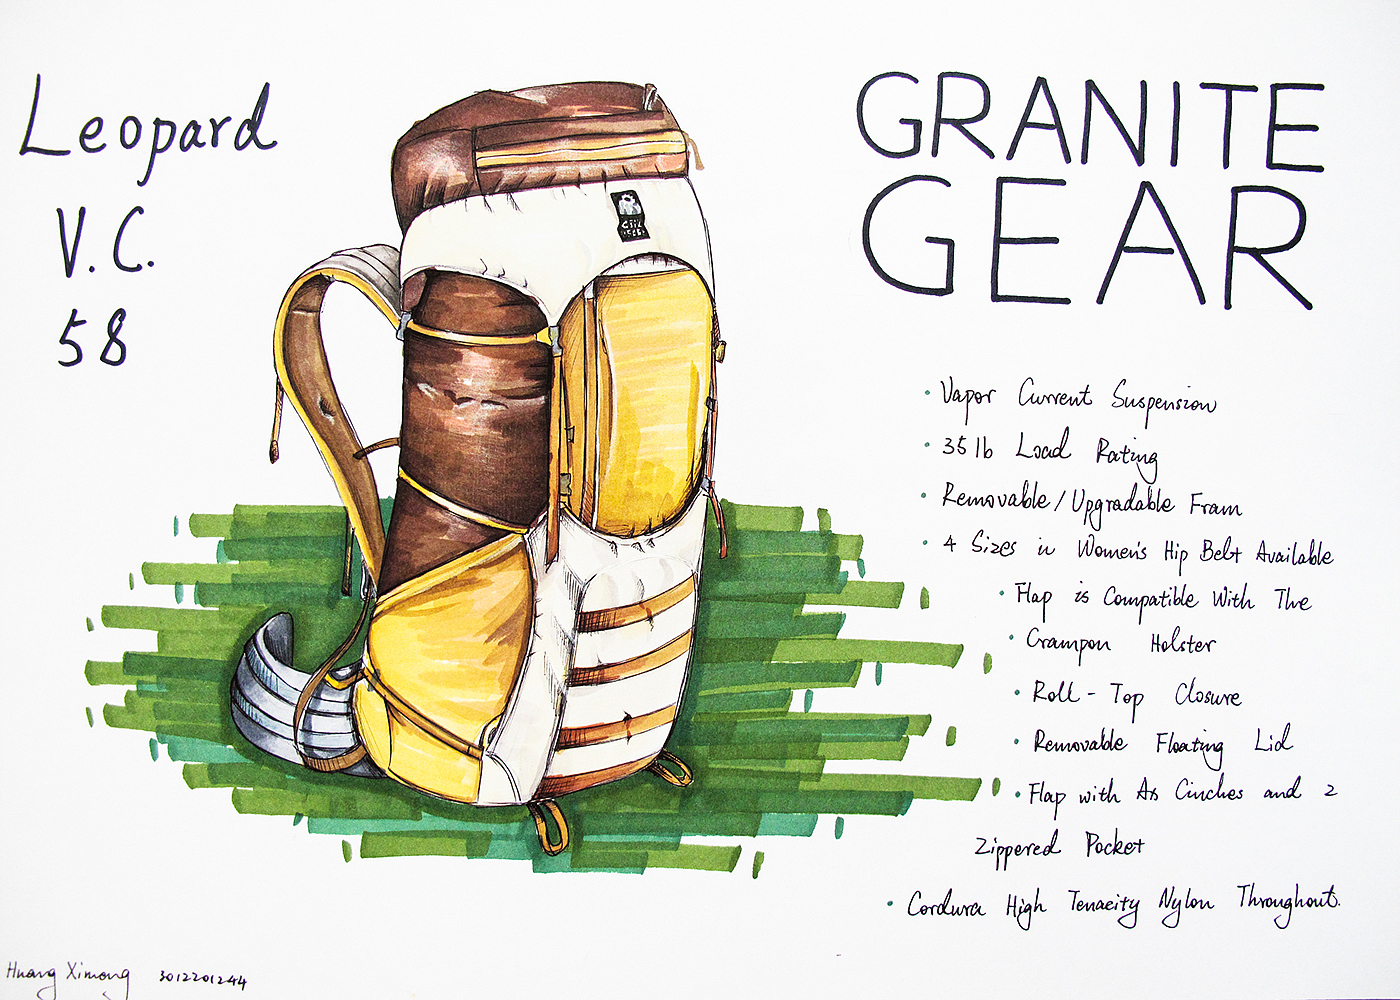 Leopard
V. C.
58
GRANITE
GEAR
• Vapor Current Suspension
• 35 lb Load Rating
• Removable / Upgradable Fram
• 4 Sizes in Women's Hip Belt Available
• Flap is Compatible With The
• Crampon Holster
• Roll - Top Closure
• Removable Floating Lid
• Flap with Ax Cinches and 2
Zippered Pocket
• Cordura High Tenacity Nylon Throughout.
Huang Ximong 3012201244